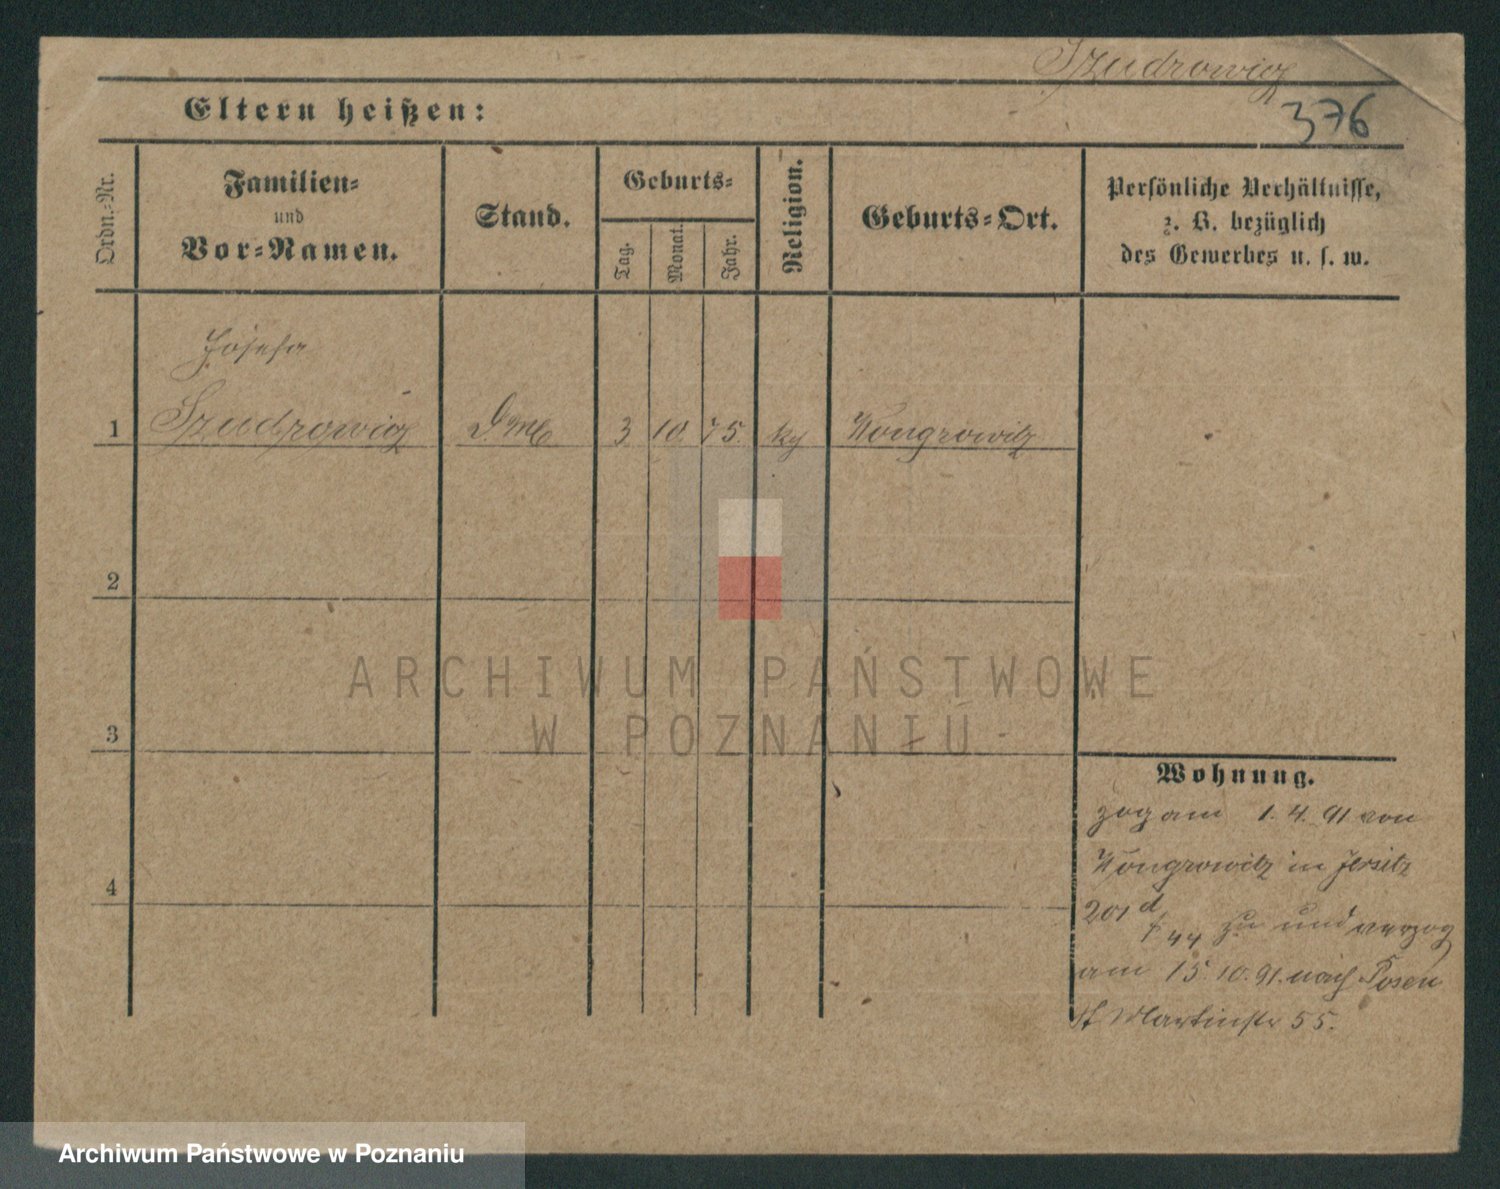 Szudrowicz
376
Eltern heißen:
Ordn.-Nr.
Familien-
und
Vor-Namen.
Stand.
Geburts-
Tag.
Monat.
Jahr.
Religion.
Geburts-Ort.
Persönliche Verhältnisse,
z. B. bezüglich
des Gewerbes u. s. w.
Josefa
1 Szudrowicz 3 10 75. Wongrowitz
2
3
4
ARCHIWUM PAŃSTWOWE
W POZNANIU
Wohnung.
zog am 1. 4. 91 von
Wongrowitz in Jersitz
201 d
44 zu und verzog
am 15. 10. 91. nach Posen
St Martinstr 55.
Archiwum Państwowe w Poznaniu